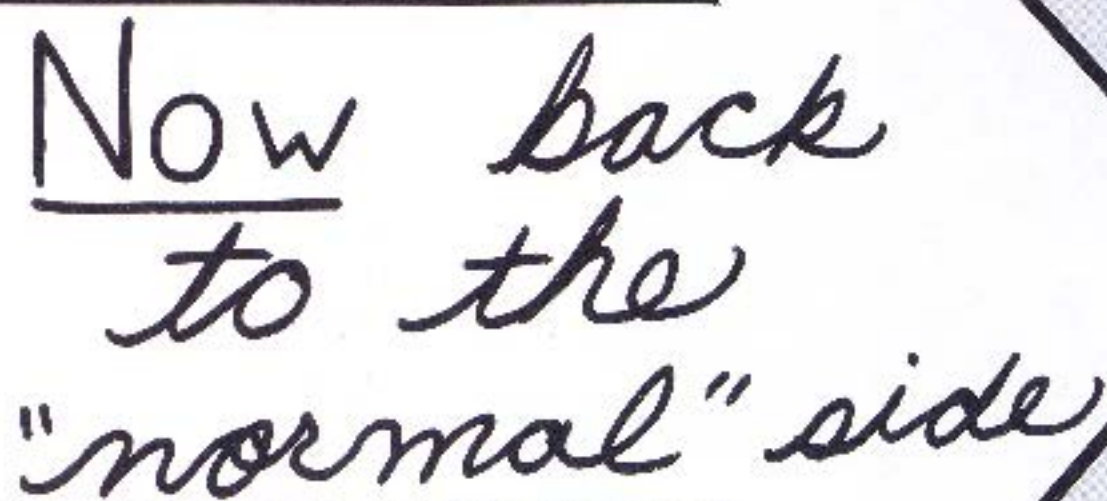 Now back
to the
"normal" side